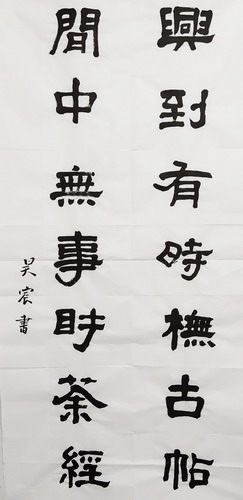 興到有時橅古帖
間中無事茶經
吴宸書